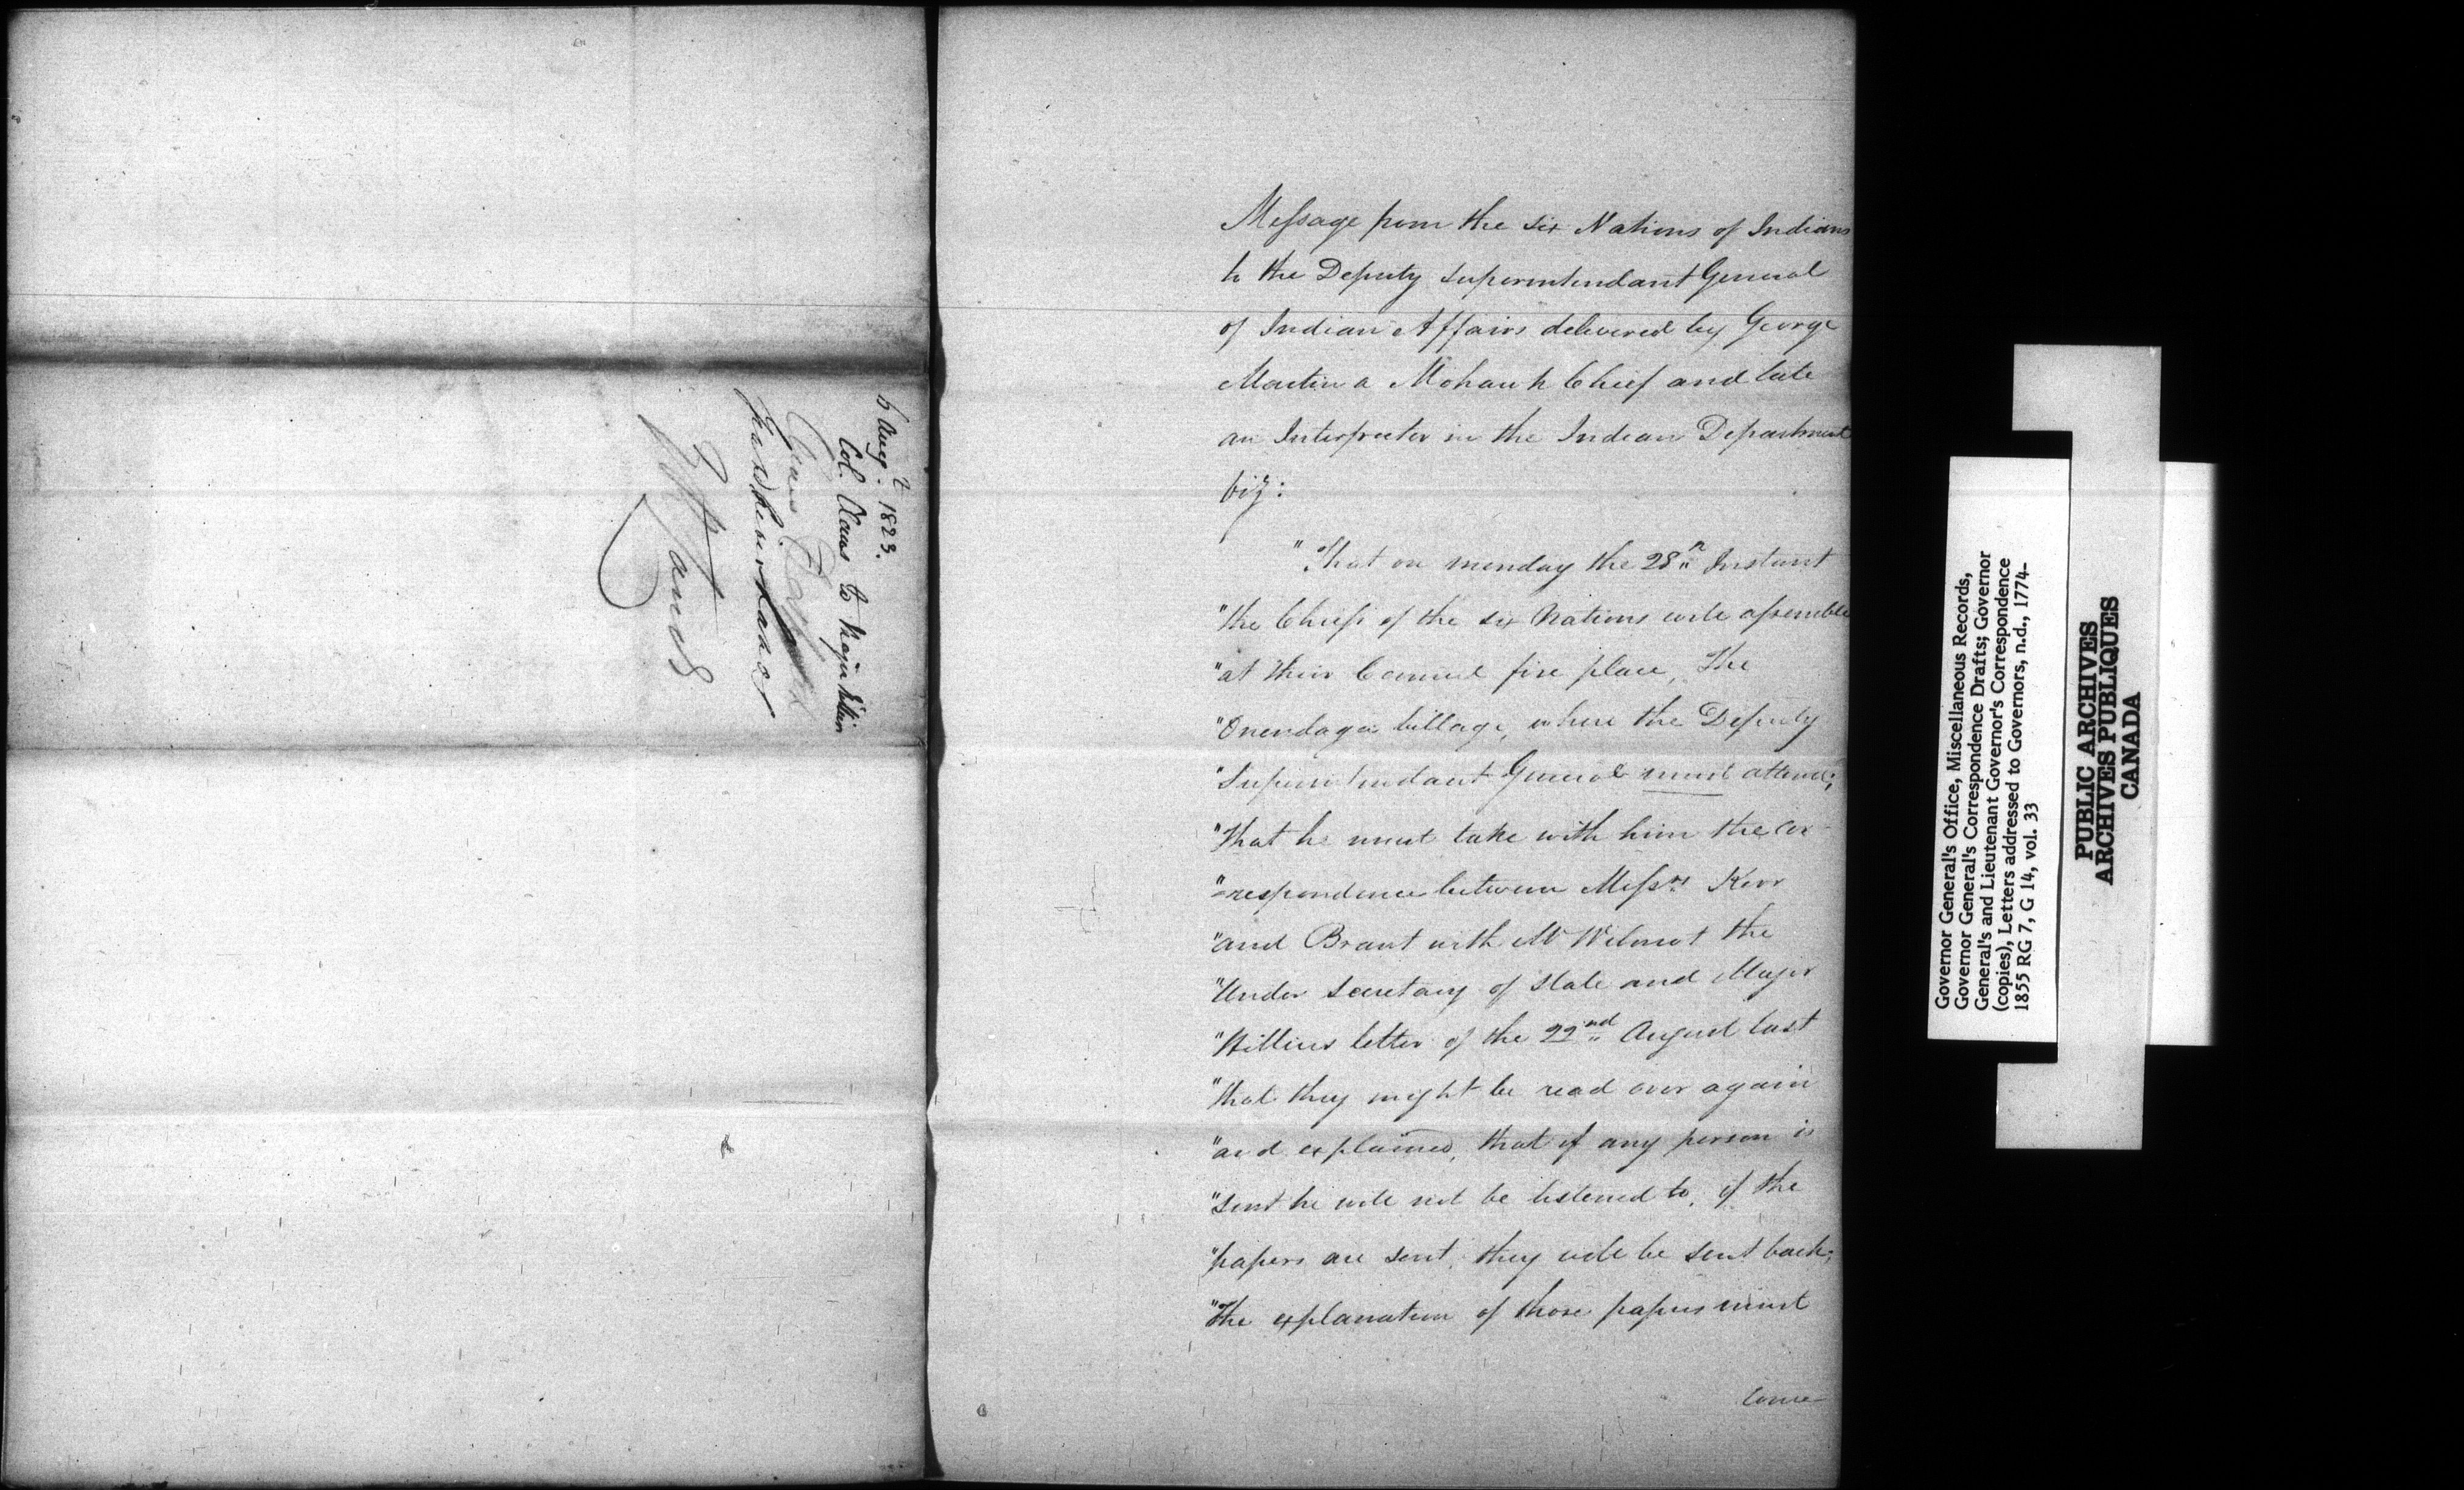 5 Augt 1823.
Col. Claus to Major Hillier
Grand
Lands
Message from the six Nations of Indians
to the Deputy Superintendant General
of Indian Affairs delivered by George
Martin a Mohawk Chief and late
an Interpreter in the Indian Department
Viz:
"That on monday the 28th Instant
"the Chiefs of the six Nations will assemble
"at their Council fire place, The
"Onendaga Village, where the Deputy
"Superintendant General must attend;
"That he must take with him the cor
"=respondence between Messrs Kerr
"and Brant with Mr Wilmot the
"Under Secretary of State and Major
"Hilliers letter of the 22nd August last
"that they might be read over again
"and explained, that if any person is
"sent he will not be listened to, if the
"papers are sent, they will be sent back;
"The explanation of those papers must
Come
Governor General's Office, Miscellaneous Records,
Governor General's Correspondence Drafts; Governor
General's and Lieutenant Governor's Correspondence
(copies), Letters addressed to Governors, n.d., 1774-
1855 RG 7, G 14, vol. 33
PUBLIC ARCHIVES
ARCHIVES PUBLIQUES
CANADA